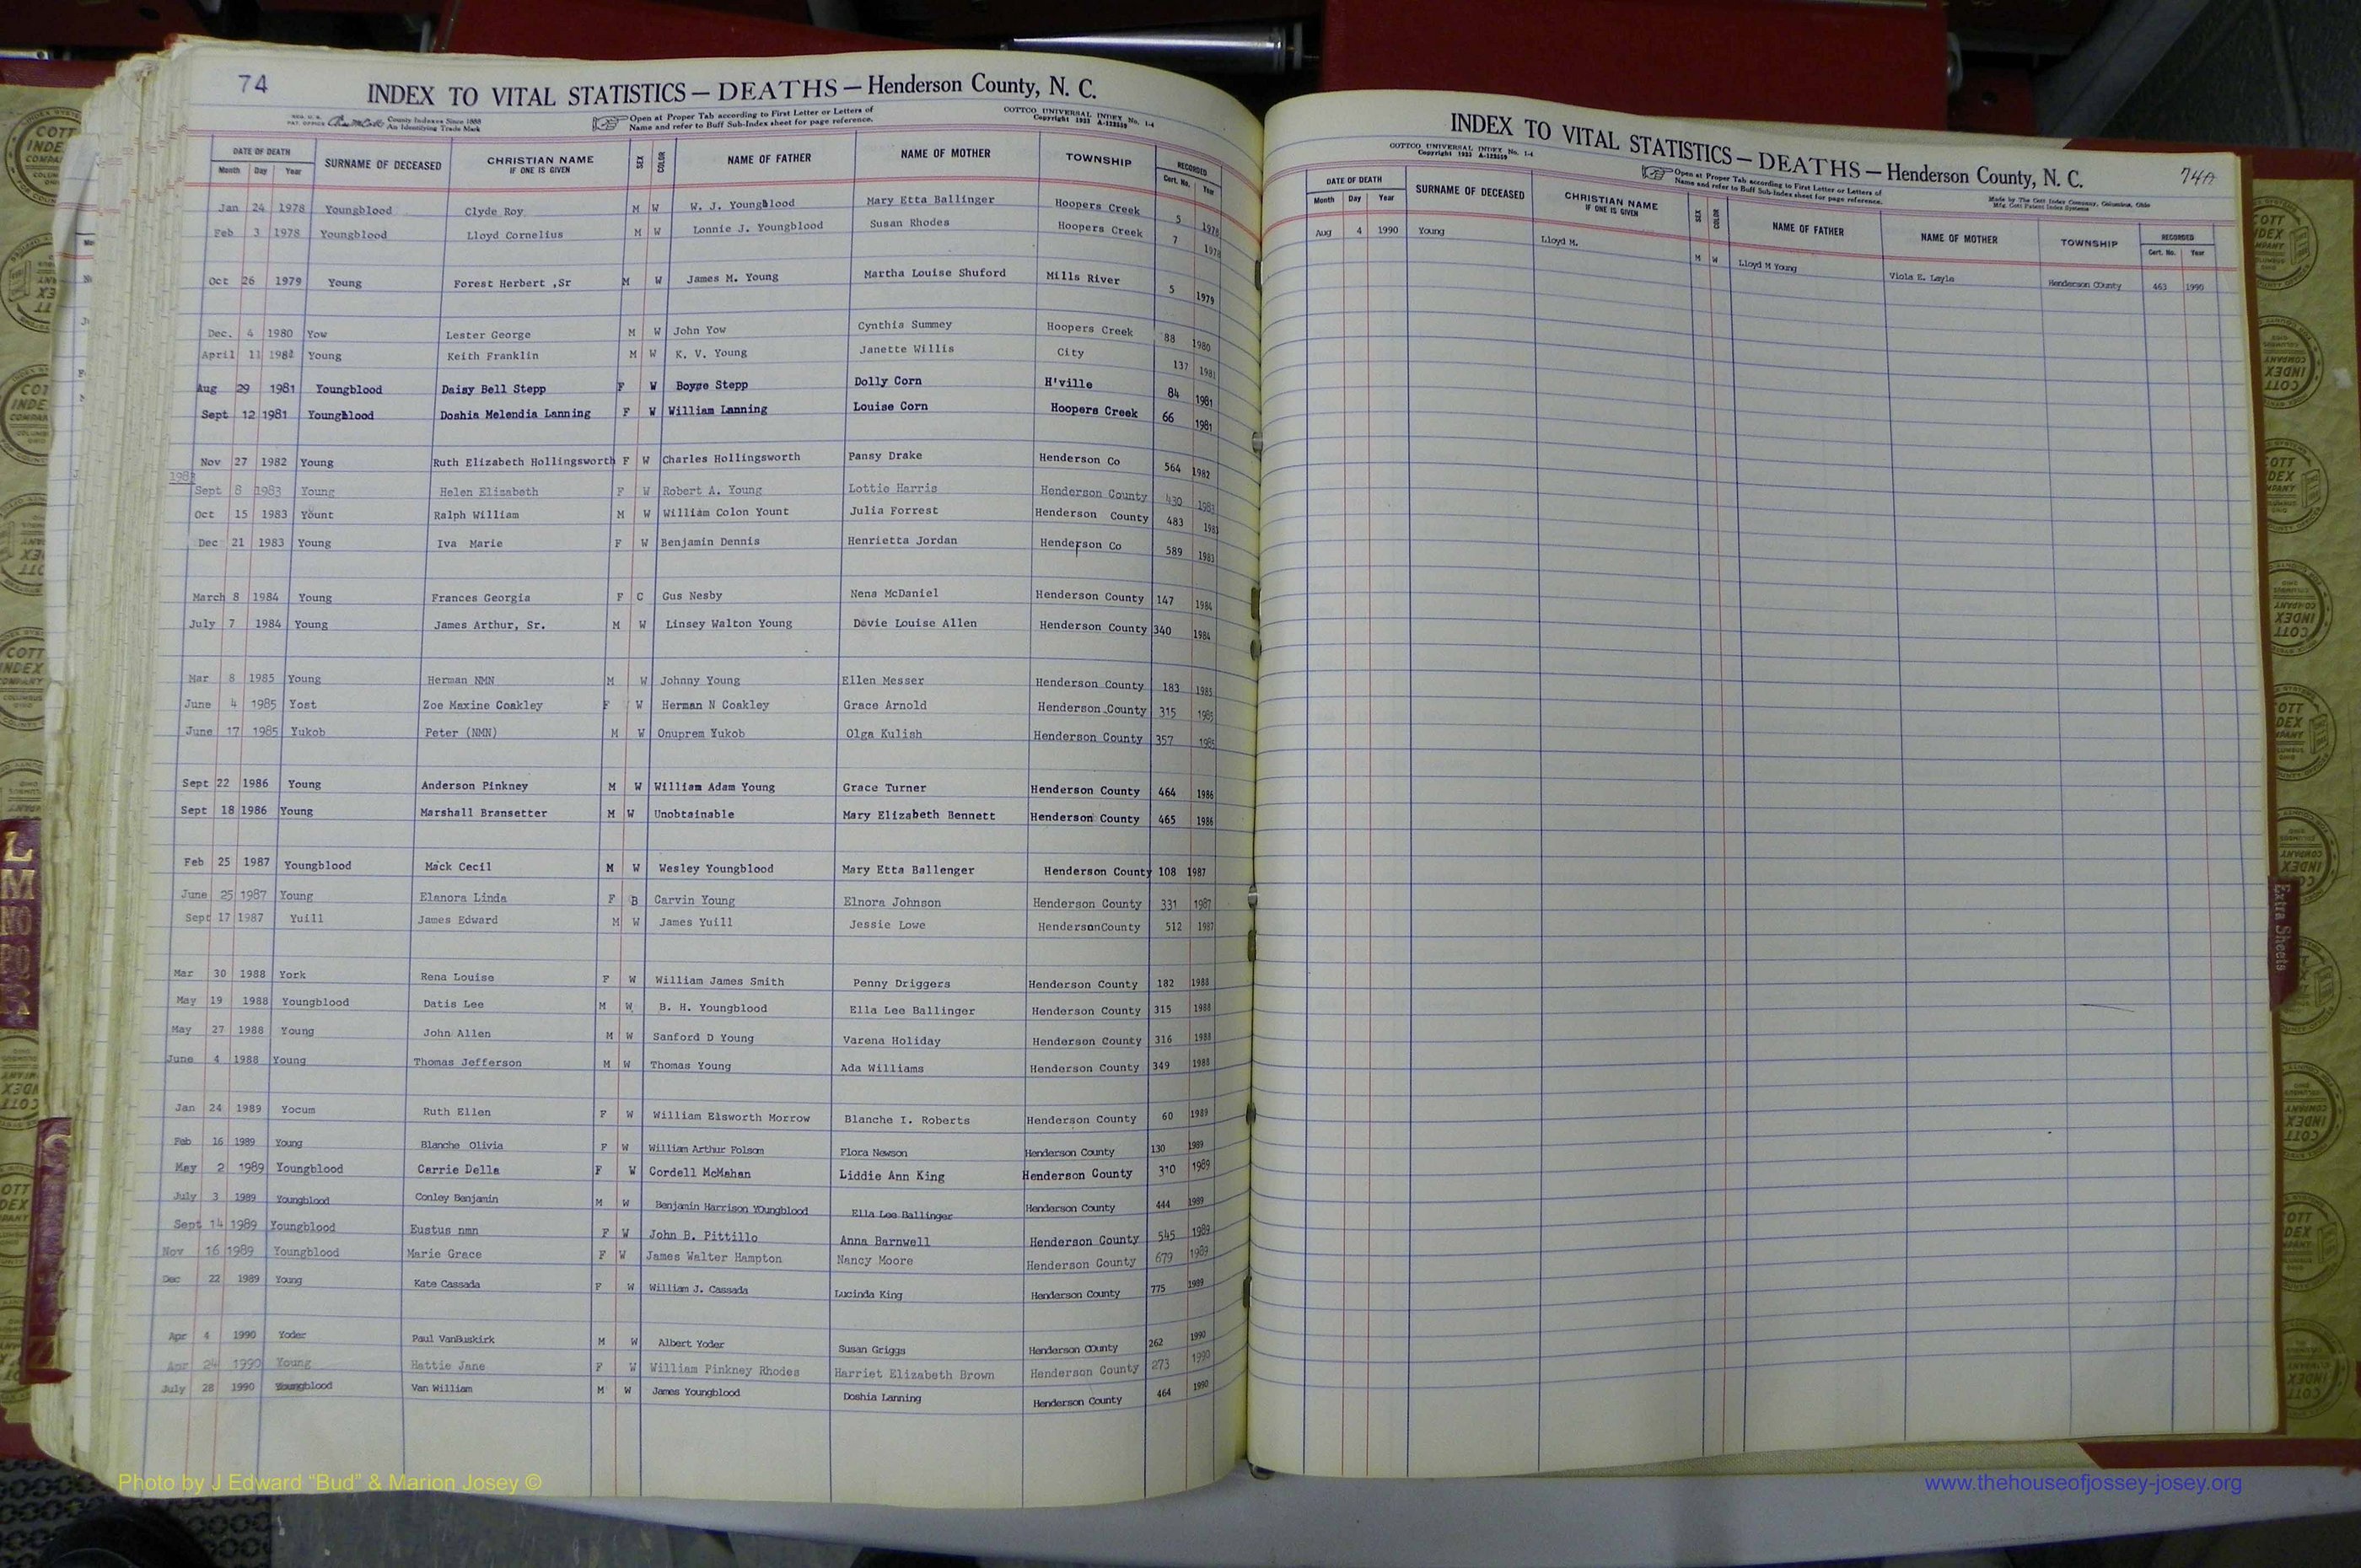 74
INDEX TO VITAL STATISTICS — DEATHS — Henderson County, N. C.
County Indexes Since 1888
An Identifying Trade Mark
Open at Proper Tab according to First Letter or Letters of
Name and refer to Buff Sub-Index sheet for page reference.
COTTCO UNIVERSAL INDEX No. 1-4
Copyright 1933 A-122559
DATE OF DEATH SURNAME OF DECEASED CHRISTIAN NAME IF ONE IS GIVEN SEX COLOR NAME OF FATHER NAME OF MOTHER TOWNSHIP RECORDED
Month Day Year Cert. No. Year
Jan 24 1978 Youngblood Clyde Roy M W W. J. Youngblood Mary Etta Ballinger Hoopers Creek 5 1978
Feb 3 1978 Youngblood Lloyd Cornelius M W Lonnie J. Youngblood Susan Rhodes Hoopers Creek 7 1978
Oct 26 1979 Young Forest Herbert ,Sr M W James M. Young Martha Louise Shuford Mills River 5 1979
Dec. 4 1980 Yow Lester George M W John Yow Cynthia Summey Hoopers Creek 88 1980
April 11 1981 Young Keith Franklin M W K. V. Young Janette Willis City 137 1981
Aug 29 1981 Youngblood Daisy Bell Stepp F W Boyse Stepp Dolly Corn H'ville 84 1981
Sept 12 1981 Youngblood Doshia Melendia Lanning F W William Lanning Louise Corn Hoopers Creek 66 1981
Nov 27 1982 Young Ruth Elizabeth Hollingsworth F W Charles Hollingsworth Pansy Drake Henderson Co 564 1982
1983
Sept 8 1983 Young Helen Elizabeth F W Robert A. Young Lottie Harris Henderson County 430 1983
Oct 15 1983 Yount Ralph William M W William Colon Yount Julia Forrest Henderson County 483 1983
Dec 21 1983 Young Iva Marie F W Benjamin Dennis Henrietta Jordan Henderson Co 589 1983
March 8 1984 Young Frances Georgia F C Gus Nesby Nena McDaniel Henderson County 147 1984
July 7 1984 Young James Arthur, Sr. M W Linsey Walton Young Dovie Louise Allen Henderson County 340 1984
Mar 8 1985 Young Herman NMN M W Johnny Young Ellen Messer Henderson County 183 1985
June 4 1985 Yost Zoe Maxine Coakley F W Herman N Coakley Grace Arnold Henderson County 315 1985
June 17 1985 Yukob Peter (NMN) M W Onuprem Yukob Olga Kulish Henderson County 357 1985
Sept 22 1986 Young Anderson Pinkney M W William Adam Young Grace Turner Henderson County 464 1986
Sept 18 1986 Young Marshall Bransetter M W Unobtainable Mary Elizabeth Bennett Henderson County 465 1986
Feb 25 1987 Youngblood Mack Cecil M W Wesley Youngblood Mary Etta Ballenger Henderson County 108 1987
June 25 1987 Young Elanora Linda F B Carvin Young Elnora Johnson Henderson County 331 1987
Sept 17 1987 Yuill James Edward M W James Yuill Jessie Lowe HendersonCounty 512 1987
Mar 30 1988 York Rena Louise F W William James Smith Penny Driggers Henderson County 182 1988
May 19 1988 Youngblood Datis Lee M W B. H. Youngblood Ella Lee Ballinger Henderson County 315 1988
May 27 1988 Young John Allen M W Sanford D Young Varena Holiday Henderson County 316 1988
June 4 1988 Young Thomas Jefferson M W Thomas Young Ada Williams Henderson County 349 1988
Jan 24 1989 Yocum Ruth Ellen F W William Elsworth Morrow Blanche I. Roberts Henderson County 60 1989
Feb 16 1989 Young Blanche Olivia F W William Arthur Folsom Flora Newson Henderson County 130 1989
May 2 1989 Youngblood Carrie Della F W Cordell McMahan Liddie Ann King Henderson County 310 1989
July 3 1989 Youngblood Conley Benjamin M W Benjamin Harrison YOungblood Ella Lee Ballinger Henderson County 444 1989
Sept 14 1989 Youngblood Eustus nmn F W John B. Pittillo Anna Barnwell Henderson County 545 1989
Nov 16 1989 Youngblood Marie Grace F W James Walter Hampton Nancy Moore Henderson County 679 1989
Dec 22 1989 Young Kate Cassada F W William J. Cassada Lucinda King Henderson County 775 1989
Apr 4 1990 Yoder Paul VanBuskirk M W Albert Yoder Susan Griggs Henderson COunty 262 1990
Apr 24 1990 Young Hattie Jane F W William Pinkney Rhodes Harriet Elizabeth Brown Henderson County 273 1990
July 28 1990 Youngblood Van William M W James Youngblood Doshia Lanning Henderson County 464 1990
INDEX TO VITAL STATISTICS — DEATHS — Henderson County, N. C.
74A
COTTCO UNIVERSAL INDEX No. 1-4
Copyright 1933 A-122559
Open at Proper Tab according to First Letter or Letters of
Name and refer to Buff Sub-Index sheet for page reference.
Made by The Cott Index Company, Columbus, Ohio
Mfg. Cott Patent Index Systems
DATE OF DEATH SURNAME OF DECEASED CHRISTIAN NAME IF ONE IS GIVEN SEX COLOR NAME OF FATHER NAME OF MOTHER TOWNSHIP RECORDED
Month Day Year Cert. No. Year
Aug 4 1990 Young Lloyd M. M W Lloyd M Young Viola E. Layla Henderson COunty 463 1990
Extra Sheets
L
M
Photo by J Edward “Bud” & Marion Josey ©
www.thehouseofjossey-josey.org